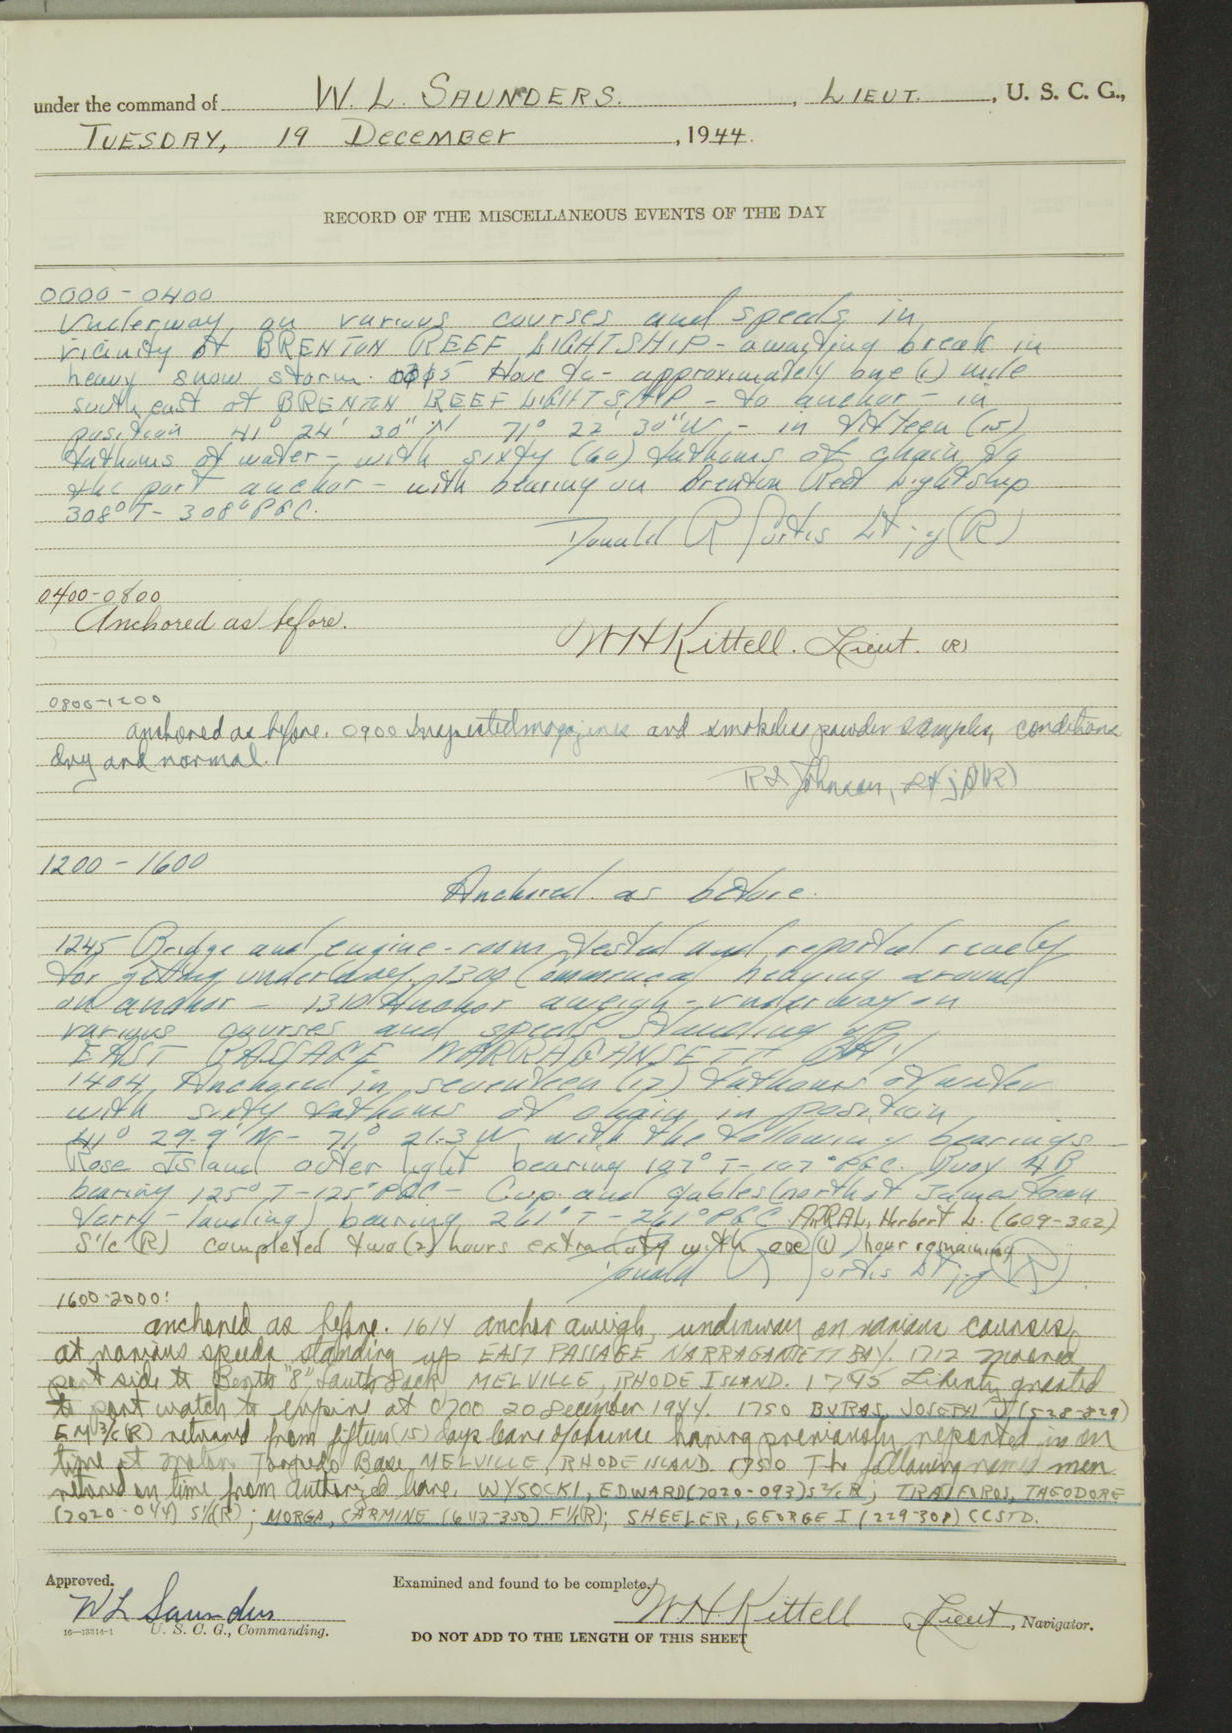 under the command of W. L. SAUNDERS. , LIEUT. , U. S. C. G.,
TUESDAY, 19 DECEMBER , 1944.
RECORD OF THE MISCELLANEOUS EVENTS OF THE DAY
0000 - 0400
Underway on various courses and speeds in
vicinity of BRENTON REEF LIGHTSHIP - awaiting break in
heavy snow storm. Hove to - approximately one (1) mile
south east of BRENTON REEF LIGHTSHIP - to anchor - in
position 41° 24' 30" N 71° 22' 30" W, - in fifteen (15)
fathoms of water - with sixty (60) fathoms of chain to
the port anchor - with bearing on Brenton Reef Lightship
308° T - 308° PGC.
Donald R Curtis Lt. jg (R)
0400-0800
Anchored as before.
W H Kittell. Lieut. (R)
0800-1200
anchored as before. 0900 Inspected magazines and smokeless powder samples, conditions
dry and normal.
Johnson, Lt jg (R)
1200 - 1600
Anchored as before.
1245 Bridge and engine-room tested and reported ready
for getting underway. 1309 Commenced heaving around
on anchor - 1310 Anchor aweigh - underway on
various courses and speeds standing up
EAST PASSAGE NARRAGANSETT BAY
1404 Anchored in seventeen (17) fathoms of water
with sixty fathoms of chain in position
41° 29.9' N - 71° 21.3 W, with the following bearings -
Rose Island outer light bearing 107° T - 107° PGC. Buoy 4B
bearing 125° T - 125° PGC - Cup and gables (north of Jamestown
ferry - landing) bearing 261° T - 261° PGC Herbert L. (609-302)
S1/c (R) completed two (2) hours extra duty with one (1) hour remaining
Donald R Curtis Lt. jg (R)
1600-2000:
anchored as before. 1614 anchor aweigh, underway on various courses,
at various speeds standing up EAST PASSAGE NARRAGANSETT BAY. 1712 Moored
port side to Berth "8" South Dock MELVILLE, RHODE ISLAND. 1745 Liberty granted
to port watch to expire at 0700 20 December 1944. 1750 BURAS, JOSEPH J (528-829)
EM 3/c (R) returned from fifteen (15) days leave of absence having previously reported in on
time at Motor Torpedo Base, MELVILLE, RHODE ISLAND. 1750 The following named men
returned on time from authorized leave. WYSOCKI, EDWARD (7020-093) S2/c R; THEODORE
(2020-044) S1/c (R); MORGA, CARMINE (642-350) F1/c (R); SHEELER, GEORGE I (229-308) CCSTD.
Approved.
W L Saunders
U. S. C. G., Commanding.
Examined and found to be complete.
W. H. Kittell , Lieut , Navigator.
16-13314-1
DO NOT ADD TO THE LENGTH OF THIS SHEET